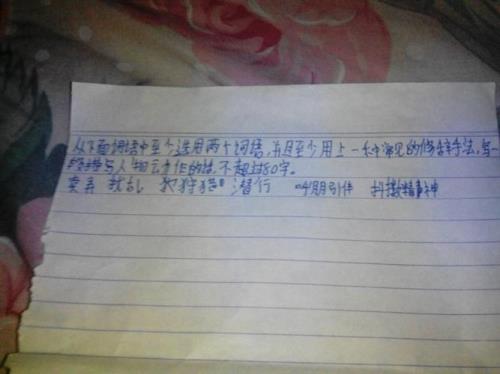 从下面词语中至少选用两个词语,并且至少用上一种常见的修辞手法,写一
段描写人物动作的话,不超过50字。
卖弄 扰乱 狡猾 潜行 呼朋引伴 抖擞精神